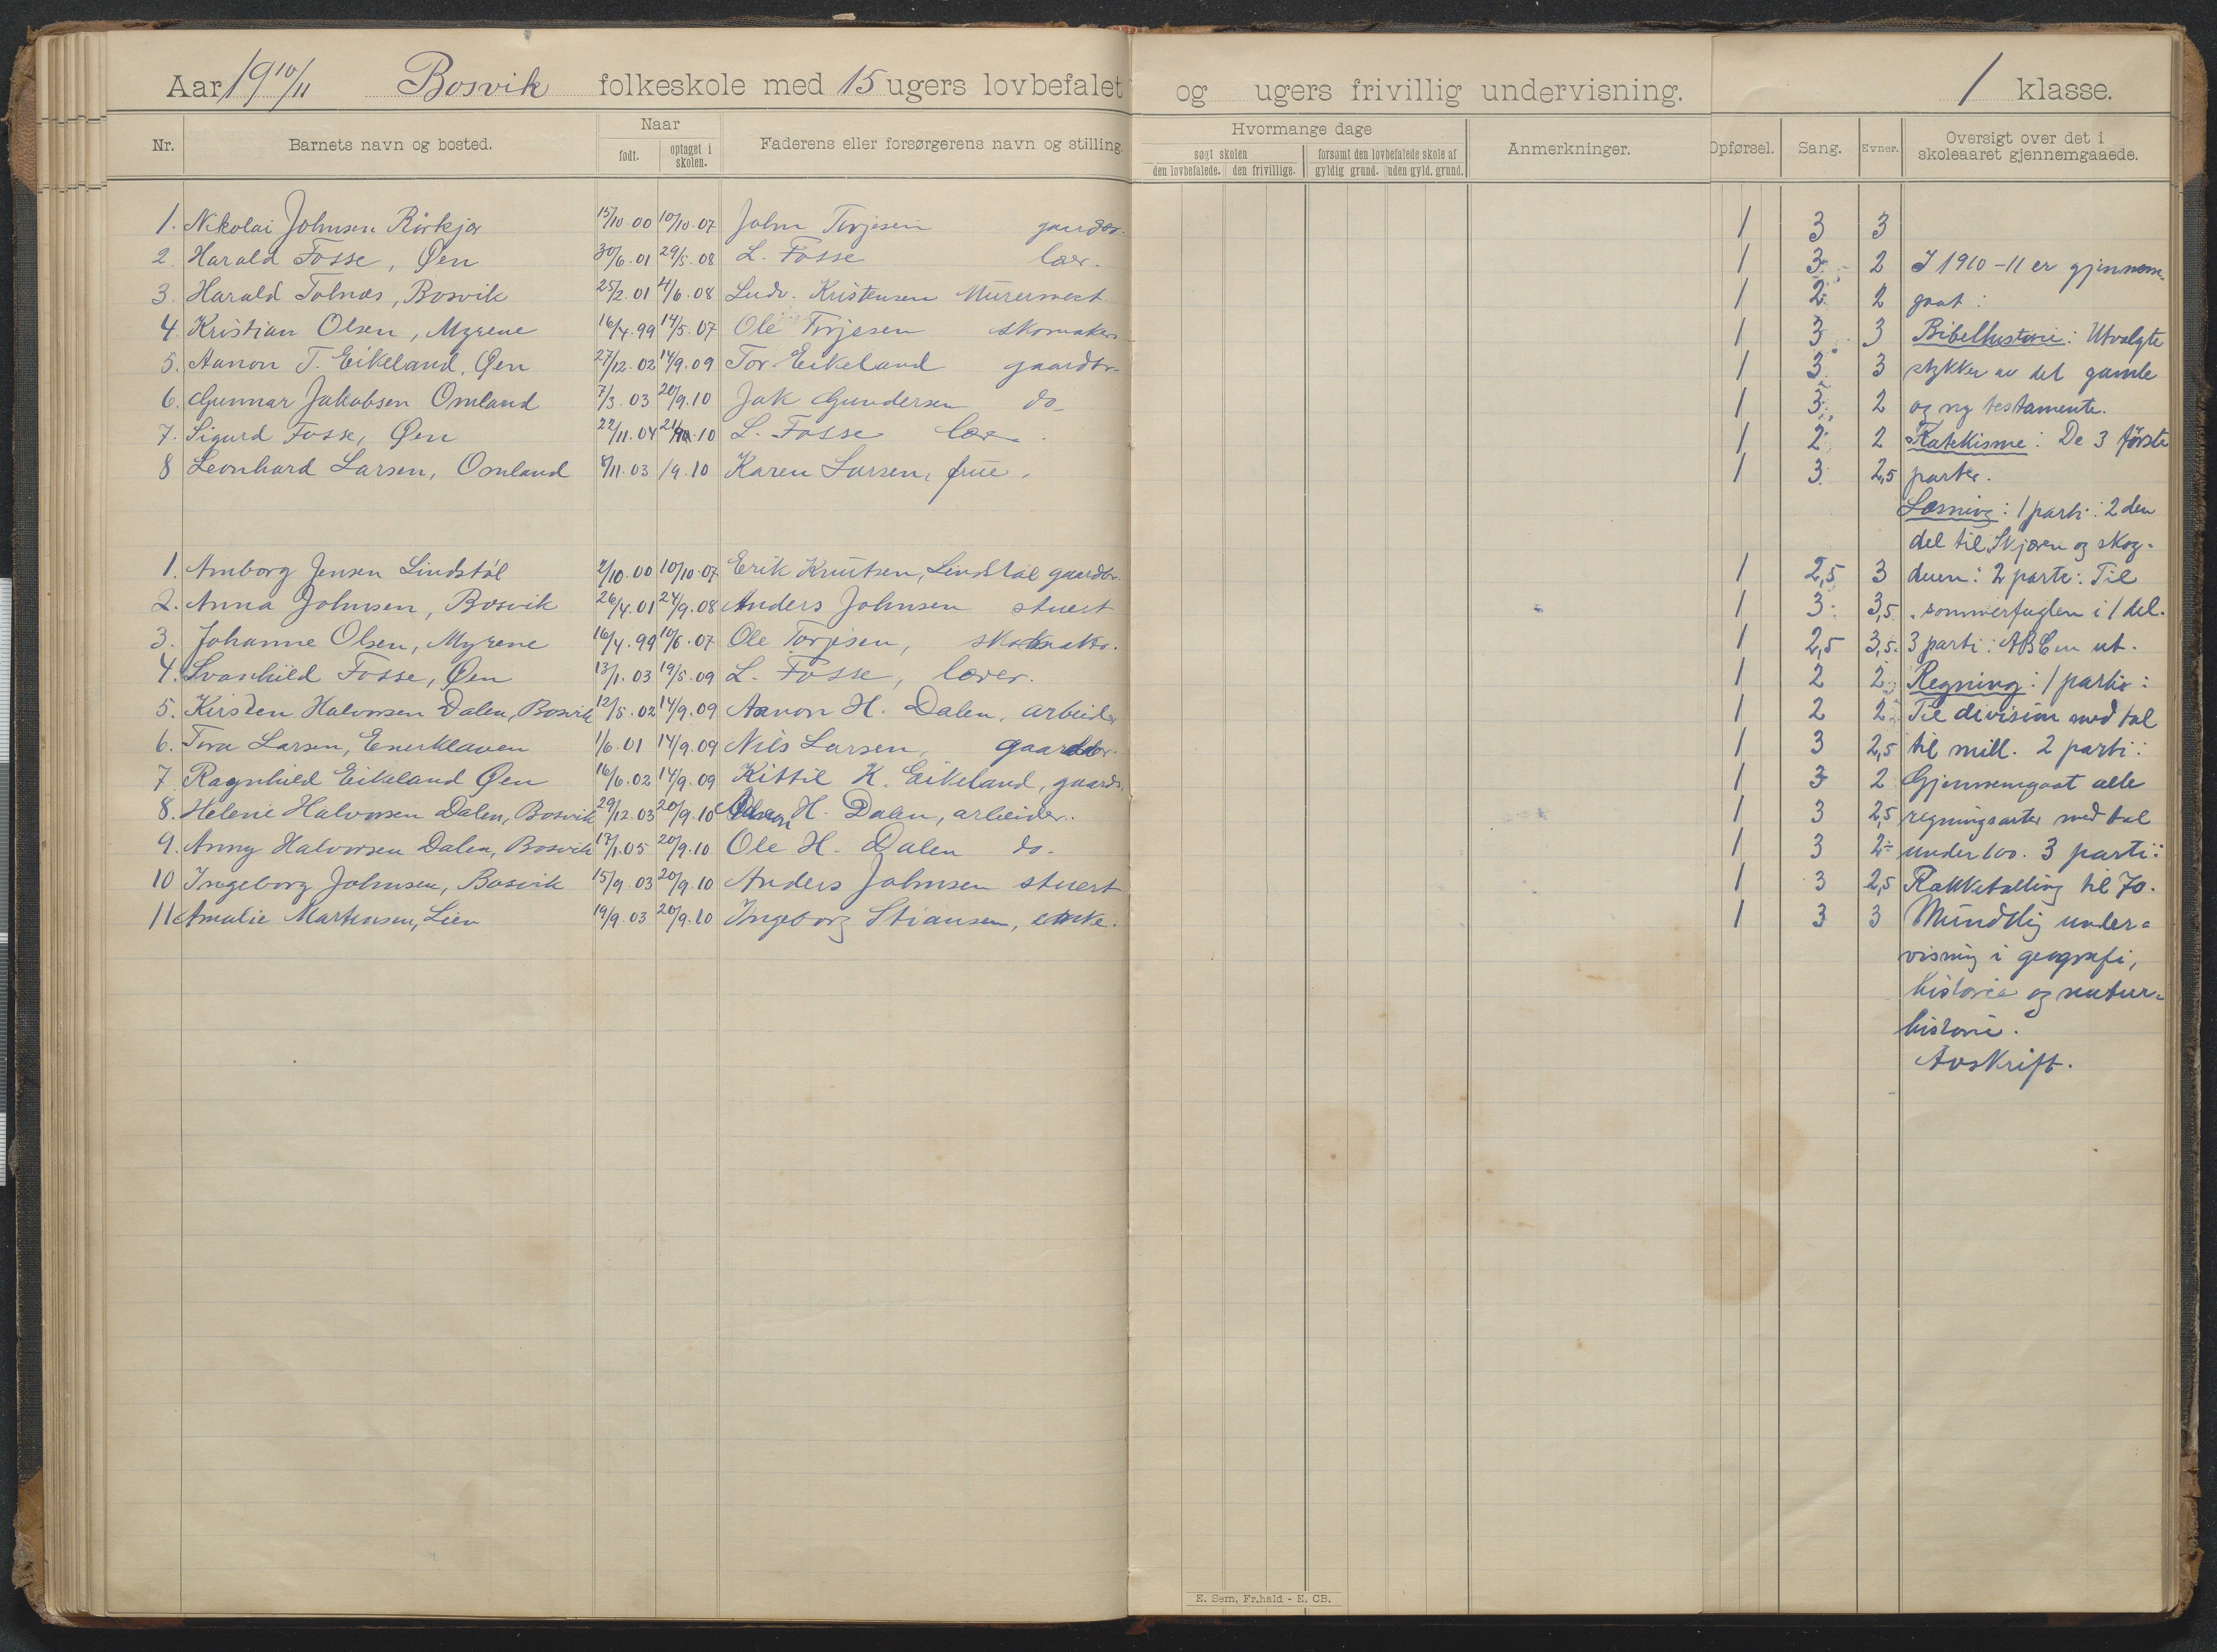 Aar 19 10/11 Bosvik folkeskole med 15 ugers lovbefalet og ugers frivillig undervisning. 1 klasse.
Nr. Barnets navn og bosted. Naar født. optaget i skolen. Faderens eller forsørgerens navn og stilling. Hvormange dage søgt skolen den lovbefalede. den frivillige. forsømt den lovbefalede skole af gyldig grund. uden gyld. grund. Anmerkninger. Opførsel. Sang. Evner. Oversigt over det i skoleaaret gjennemgaaede.
1. Nikolai Johnsen Rörkjær 15/10 00 10/10.07 John Torjesen gaardbr. 1 3 3
2. Harald Fosse, Øen 30/6.01 29/5.08 L. Fosse lær. 1 3 2 I 1910-11 er gjennem-
3. Harald Tolnæs, Bosvik 25/2.01 4/6.08 Ludv. Kristensen Murermest. 1 2 2 gaat:
4. Kristian Olsen, Myrene 16/4.99 14/5.07 Ole Torjesen skomaker 1 3 3 Bibelhistorie: Utvalgte
5. Aanon T. Eikeland, Øen 27/12.02 14/9.09 Tor Eikeland gaardbr. 1 3 3 stykker av det gamle
6. Gunnar Jakobsen Omland 7/3.03 20/9.10 Jak Gundersen do- 1 3 2 og ny testamente.
7. Sigurd Fosse, Øen 22/11.04 .10 L. Fosse lær. 1 2 2 Katekisme: De 3 første
8 Leonhard Larsen, Omland 8/11.03 /9.10 Karen Larsen, frue. 1 3 2,5 parter.
Læsning: 1 parti: 2 den
del til Skjæra og skog-
1. Amborg Jensen Lindstøl 2/10.00 10/10.07 Erik Knutsen, Lindstøl gaardbr. 1 2,5 3 duen: 2 parti: Til
2. Anna Johnsen, Bosvik 26/4.01 24/9.08 Anders Johnsen stuert 1 3 3,5 sommerfuglen i 1 del.
3. Johanne Olsen, Myrene 16/4.99 10/6.07 Ole Torjesen, skomaker. 1 2,5 3,5. 3 parti: ABCen ut.
4. Svanhild Fosse, Øen 13/1.03 19/5.09 L. Fosse, lærer. 1 2 2 Regning: 1 parti:
5. Kirsten Halvorsen Dalen, Bosvik 12/5.02 14/9.09 Aanon H. Dalen, arbeider 1 2 2 Til division med tal
6. Tora Larsen, Enerklaven 1/6.01 14/9.09 Nils Larsen, gaardbr. 1 3 2,5 til mill. 2 parti:
7. Ragnhild Eikeland Øen 16/6.02 14/9.09 Kittil K. Eikeland, gaardb. 1 3 2 Gjennemgaat alle
8. Helene Halvorsen Dalen, Bosvik 29/12.03 20/9.10 H. Dalen, arbeider. 1 3 2,5 regningsarter med tal
9. Anny Halvorsen Dalen, Bosvik 17/1.05 20/9.10 Ole H. Dalen do- 1 3 2÷ under 100. 3 parti:
10 Ingeborg Johnsen, Bosvik 15/9.03 20/9.10 Anders Johnsen stuert 1 3 2,5 Rækketælling til 70.
11 Amalie Martinsen, Lien 19/9.03 20/9.10 Ingeborg Stiansen, enke. 1 3 3 Mundtlig under-
visning i geografi,
historie og natur-
historie.
Avskrift.
E. Sem, Fr.hald - E. CB.